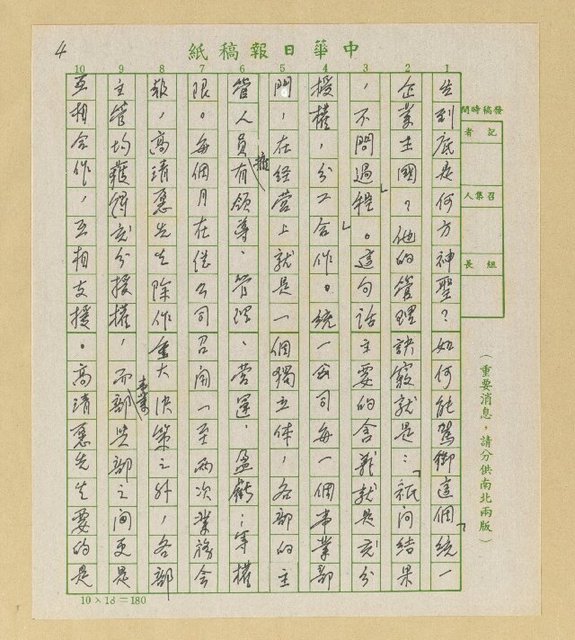 4
中華日報稿紙
發稿時間
記者
召集人
組長
(重要消息,請分供南北兩版)
1 2 3 4 5 6 7 8 9 10
生到底是何方神聖?如何能駕御這個「統一
企業王國?他的管理訣竅就是:「祇問結果
,不問過程」。這句話主要的含義就是充分
授權,分工合作」。統一公司每一個事業部
門,在経营上就是一個獨立体,各部的主
管人員有權領導、管理、營運、盈虧…等權
限。每個月在總公司召開一至兩次業務會
報,高清愿先生除作重大決策之外,各部
主管均獲得充分授權,而事業部與部之間更是
互相合作,互相支援。高清愿先生要的是
10×18=180